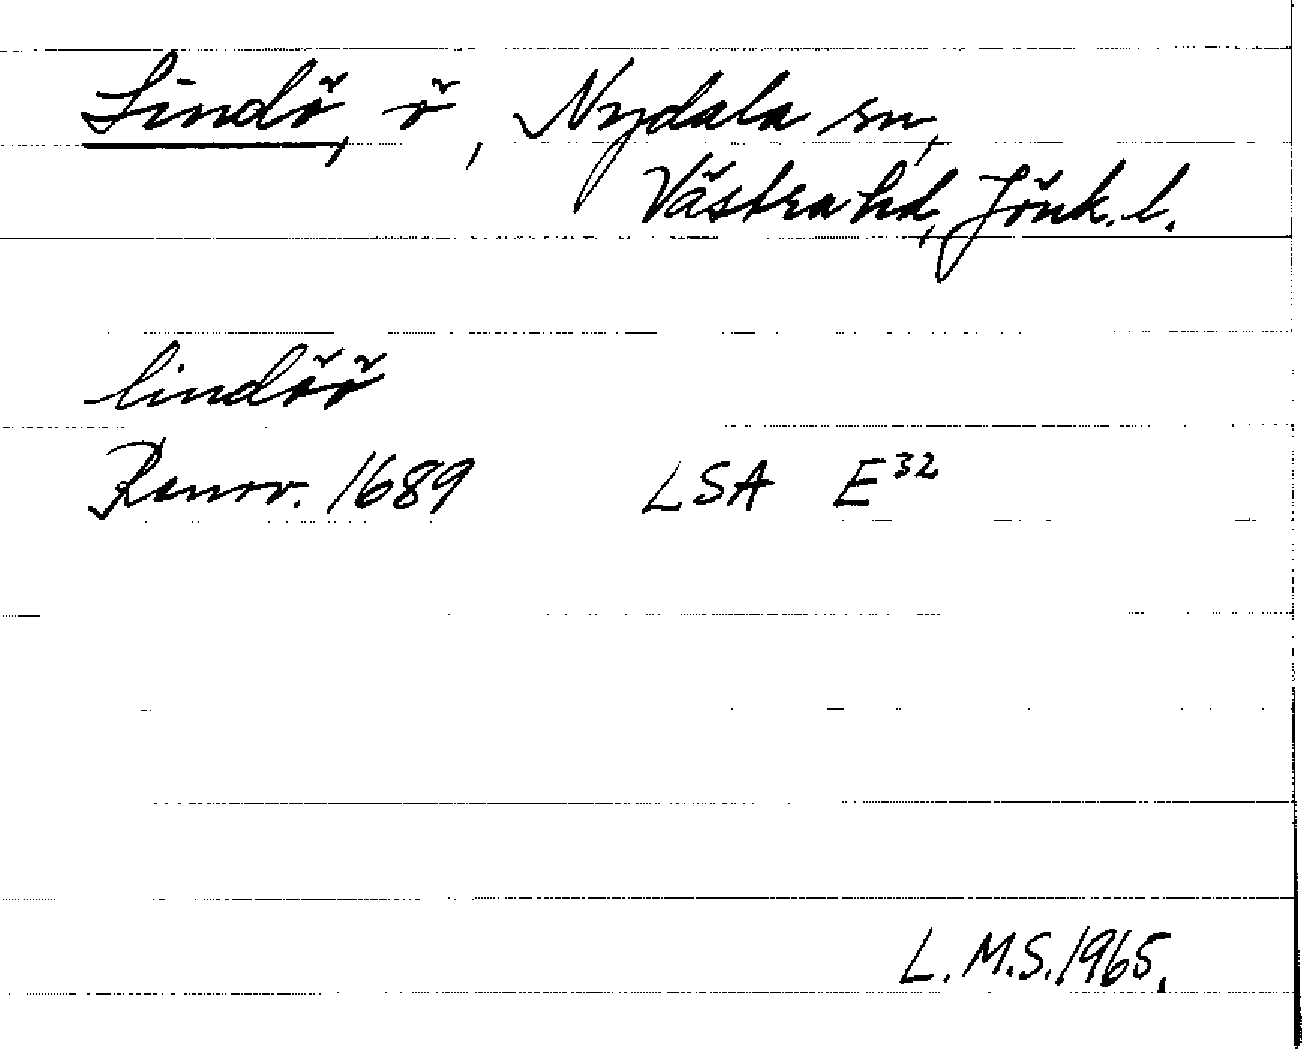 Lindö, ö, Nydala sn,
Västra hd, Jönk. l.
lindöö
Renov. 1689 LSA E32
L. M.S. 1965.